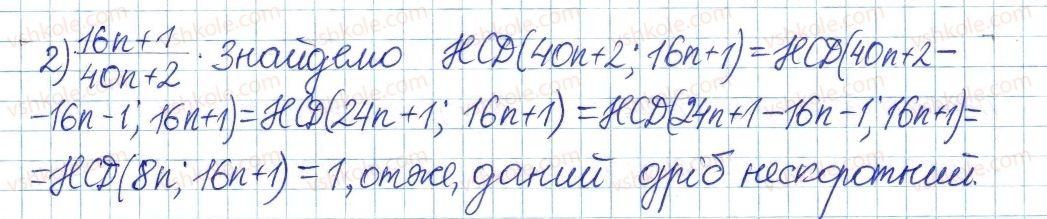 2) 16n+1/40n+2. Знайдемо НСД(40n+2; 16n+1)=НСД(40n+2-
-16n-1; 16n+1)=НСД(24n+1; 16n+1)=НСД(24n+1-16n-1; 16n+1)=
=НСД(8n; 16n+1)=1, отже, даний дріб нескоротний.